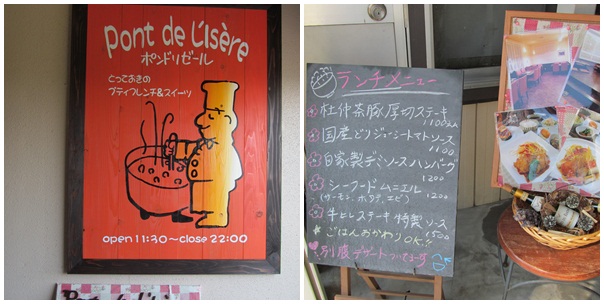 Pont de L'Isère
ポンドリゼール
とっておきの
プティフレンチ&スイーツ
open 11:30～close 22:00
Pont de l'Is
ランチメニュー
杜仲茶豚厚切ステーキ
1100
国産とりジューシートマトソース
1100
自家製デミソースハンバーグ
1200
シーフードムニエル
(サーモン、ホタテ、エビ) 1200
牛ヒレステーキ 特製ソース
1500
ごはんおかわりOK!!
別腹デザートついてまーす